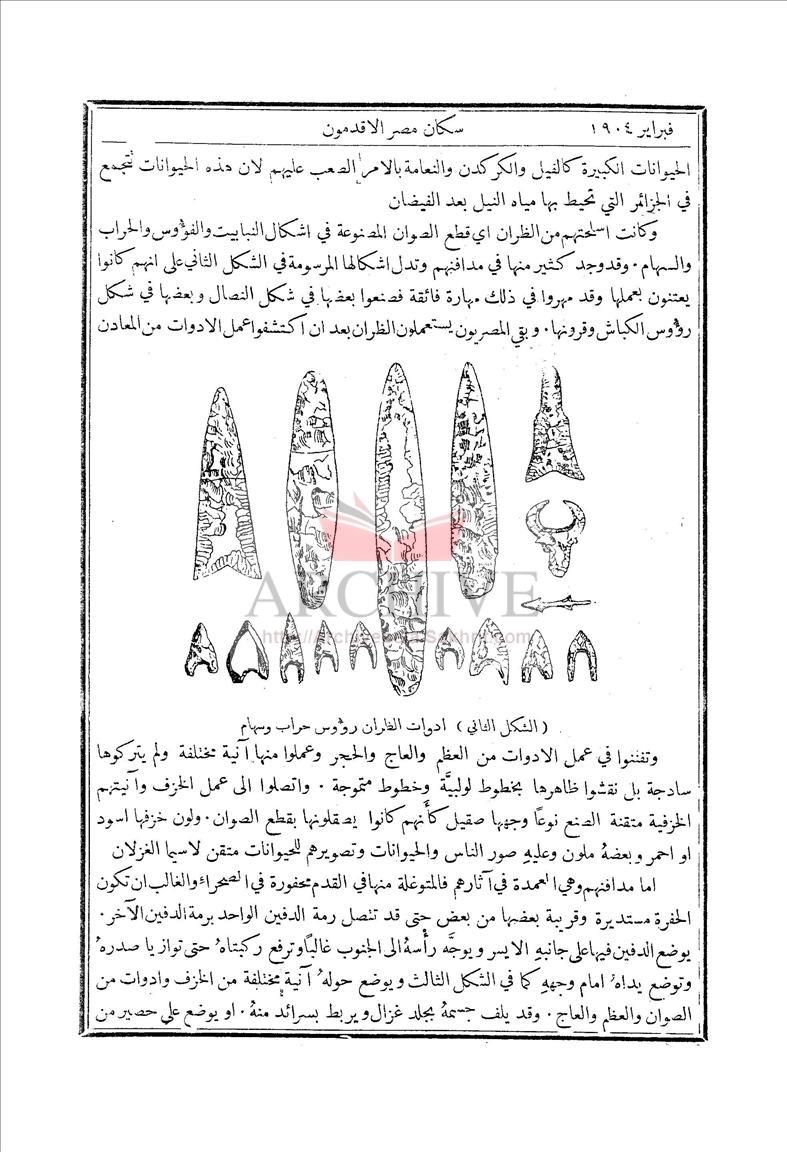 فبراير ١٩٠٤
سكان مصر الاقدمون
الحيوانات الكبيرة كالفيل والكركدن والنعامة بالامر الصعب عليهم لان هذه الحيوانات تتجمع
في الجزائر التي تحيط بها مياه النيل بعد الفيضان
وكانت اسلحتهم من الظران اي قطع الصوان المصنوعة في اشكال النبابيت والفؤوس والحراب
والسهام. وقد وجد كثير منها في مدافنهم وتدل اشكالها المرسومة في الشكل الثاني على انهم كانوا
يعتنون بعملها وقد مهروا في ذلك مهارة فائقة فصنعوا بعضها في شكل النصال وبعضها في شكل
رؤوس الكباش وقرونها. وبقي المصريون يستعملون الظران بعد ان اكتشفوا عمل الادوات من المعادن
ARCHIVE
(الشكل الثاني) ادوات الظران رؤوس حراب وسهام
وتفننوا في عمل الادوات من العظم والعاج والحجر وعملوا منها آنية مختلفة ولم يتركوها
ساذجة بل نقشوا ظاهرها بخطوط لولبيَّة وخطوط متموجة. واتصلوا الى عمل الخزف وآنيتهم
الخزفية متقنة الصنع نوعًا وجهها صقيل كأنهم كانوا يصقلونها بقطع الصوان. ولون خزفها اسود
او احمر وبعضهُ ملون وعليهِ صور الناس والحيوانات وتصويرهم للحيوانات متقن لاسيما الغزلان
اما مدافنهم وهي العمدة في آثارهم فالمتوغلة منها في القدم محفورة في الصحراء والغالب ان تكون
الحفرة مستديرة وقريبة بعضها من بعض حتى قد تتصل رمة الدفين الواحد برمة الدفين الآخر.
يوضع الدفين فيها على جانبهِ الايسر ويوجَّه رأسهُ الى الجنوب غالبًا وترفع ركبتاهُ حتى توازيا صدرهُ
وتوضع يداهُ امام وجههِ كما في الشكل الثالث ويوضع حولهُ آنية مختلفة من الخزف وادوات من
الصوان والعظم والعاج. وقد يلف جسمهُ بجلد غزال ويربط بسرائد منهُ. او يوضع على حصير من